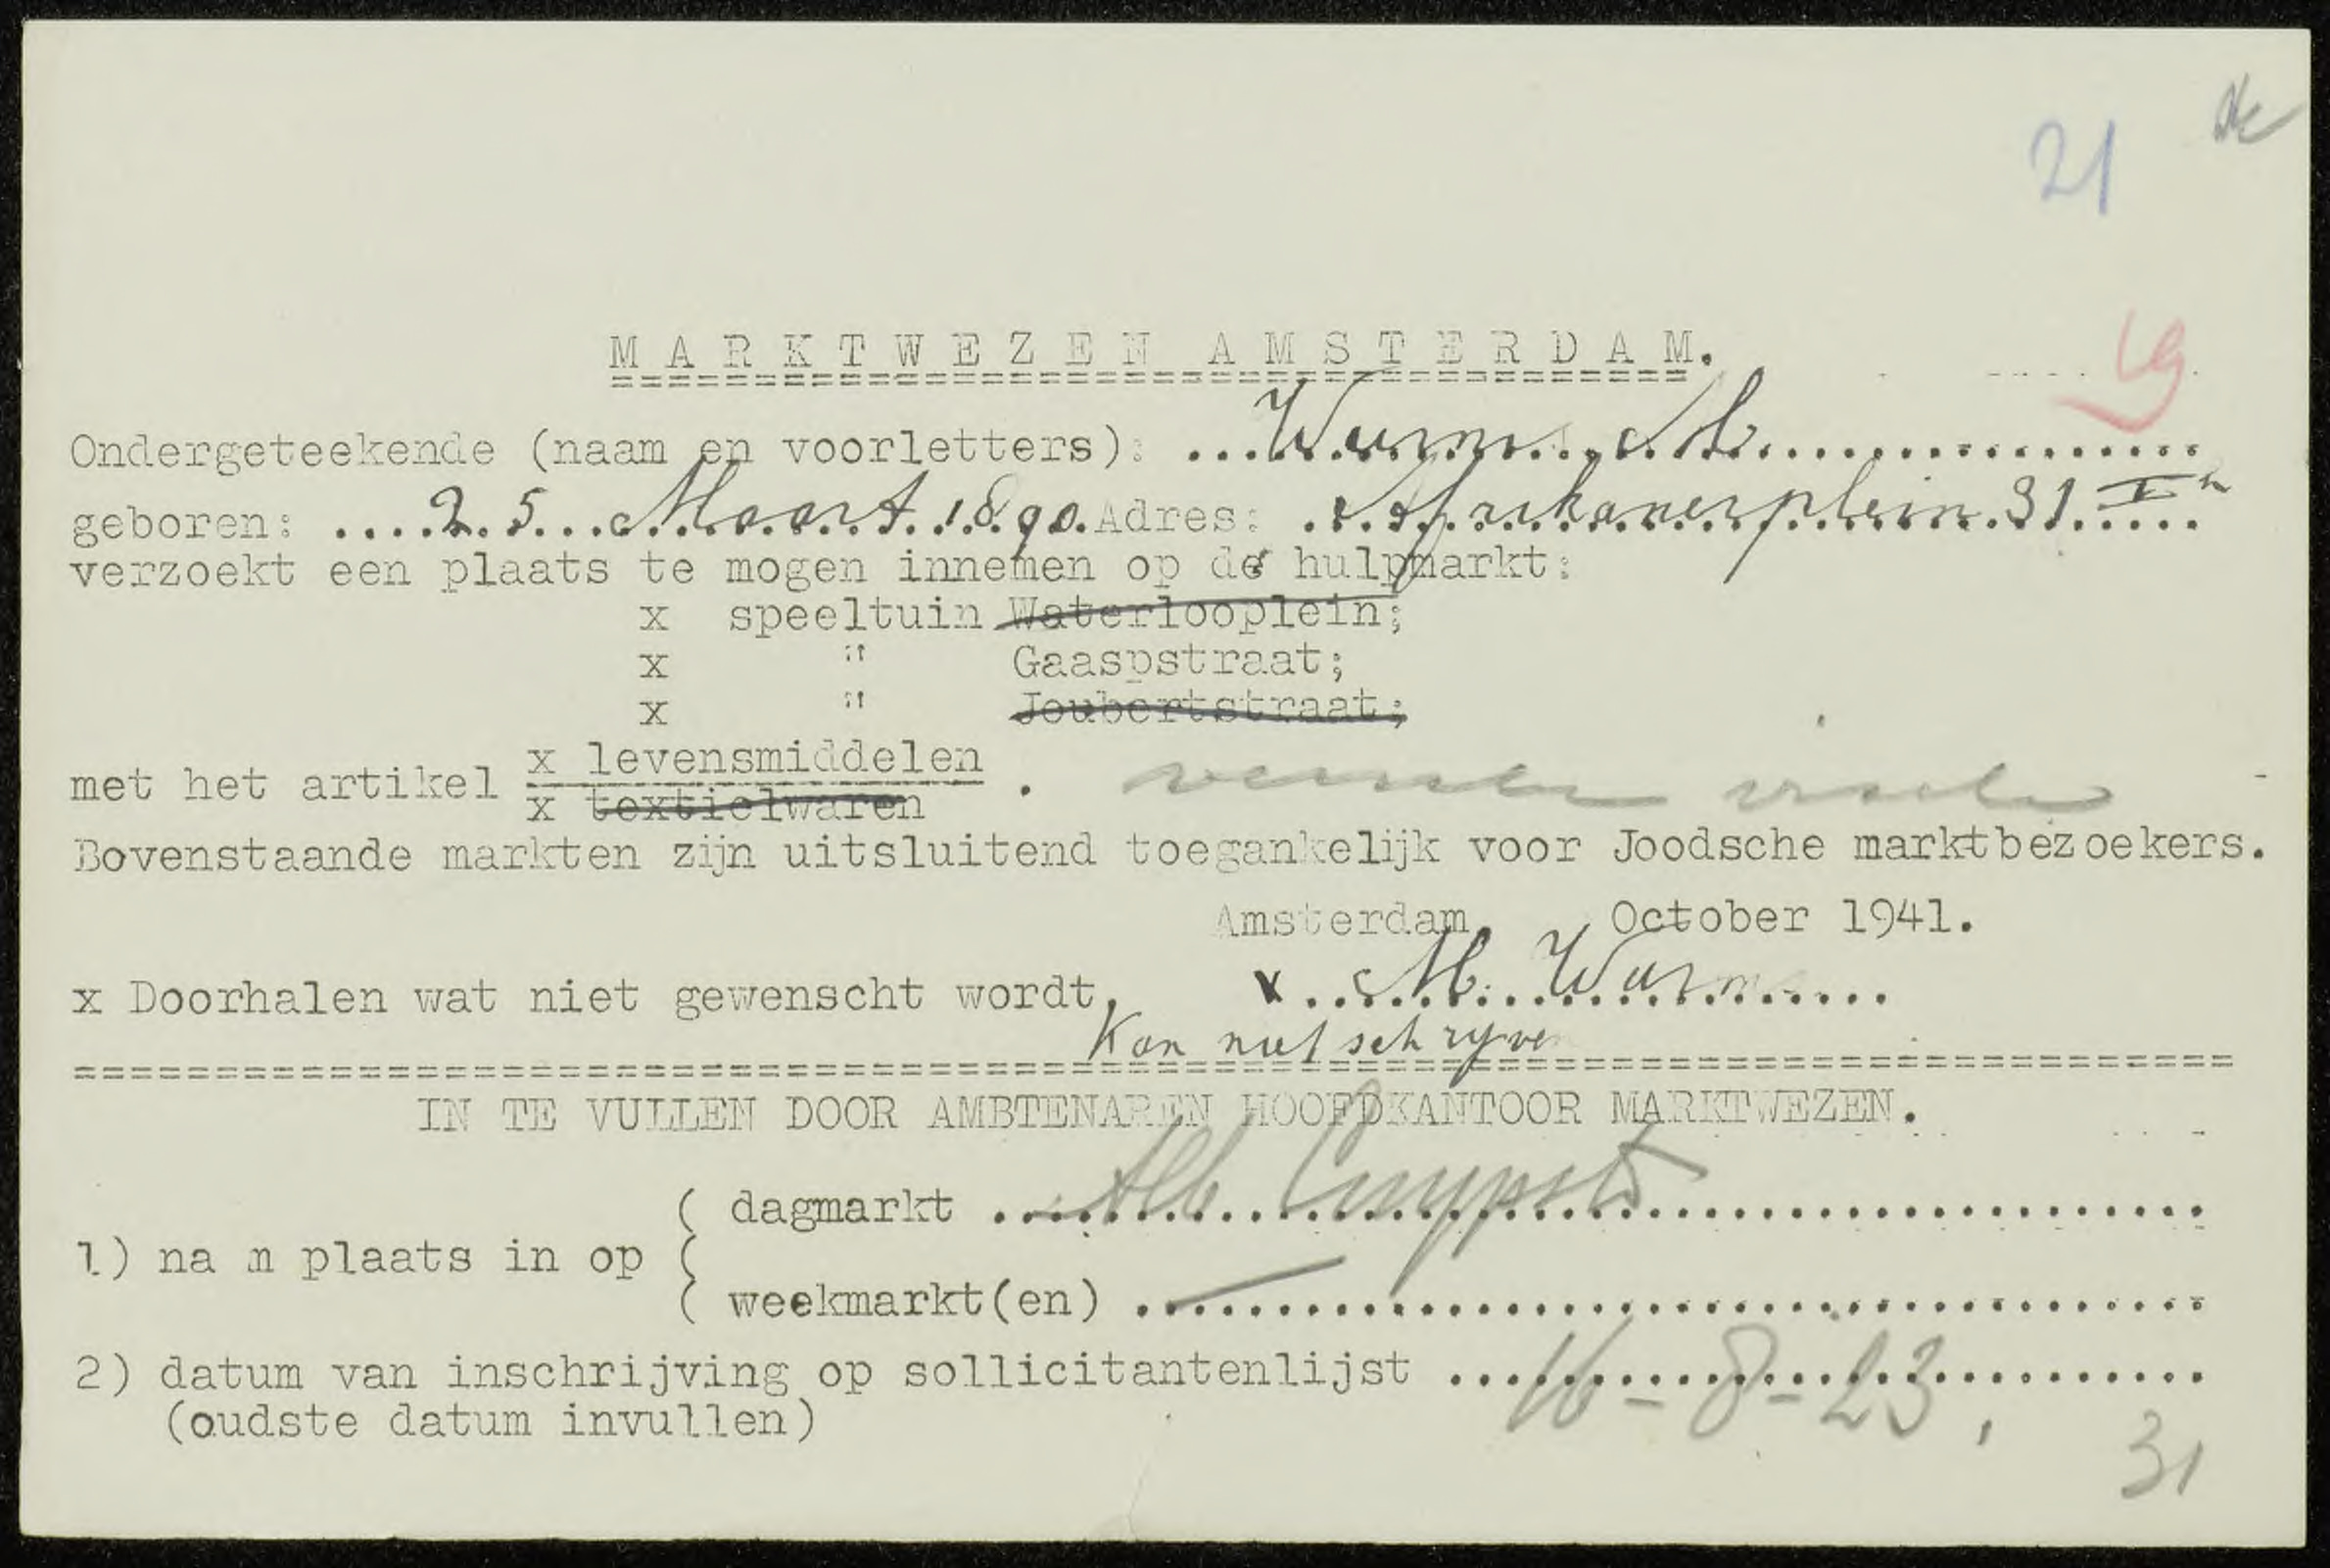 21
M A R K T W E Z E N   A M S T E R D A M.
Ondergeteekende (naam en voorletters): ...Wurms. M..................
geboren: ....25...Maart.1890.Adres: ..Afrikanerplein.31.I h....
verzoekt een plaats te mogen innemen op de hulpmarkt:
x speeltuin Waterlooplein;
x " Gaaspstraat;
x " Joubertstraat;
met het artikel x levensmiddelen .
x textielwaren
Bovenstaande markten zijn uitsluitend toegankelijk voor Joodsche marktbezoekers.
Amsterdam, October 1941.
x Doorhalen wat niet gewenscht wordt. x ..M. Wurm......
Kan niet schryve
IN TE VULLEN DOOR AMBTENAREN HOOFDKANTOOR MARKTWEZEN.
( dagmarkt ...Alb Cuypstr..................
1) na m plaats in op (
( weekmarkt(en) ..................
2) datum van inschrijving op sollicitantenlijst ....16-8-23.........
(oudste datum invullen)
31